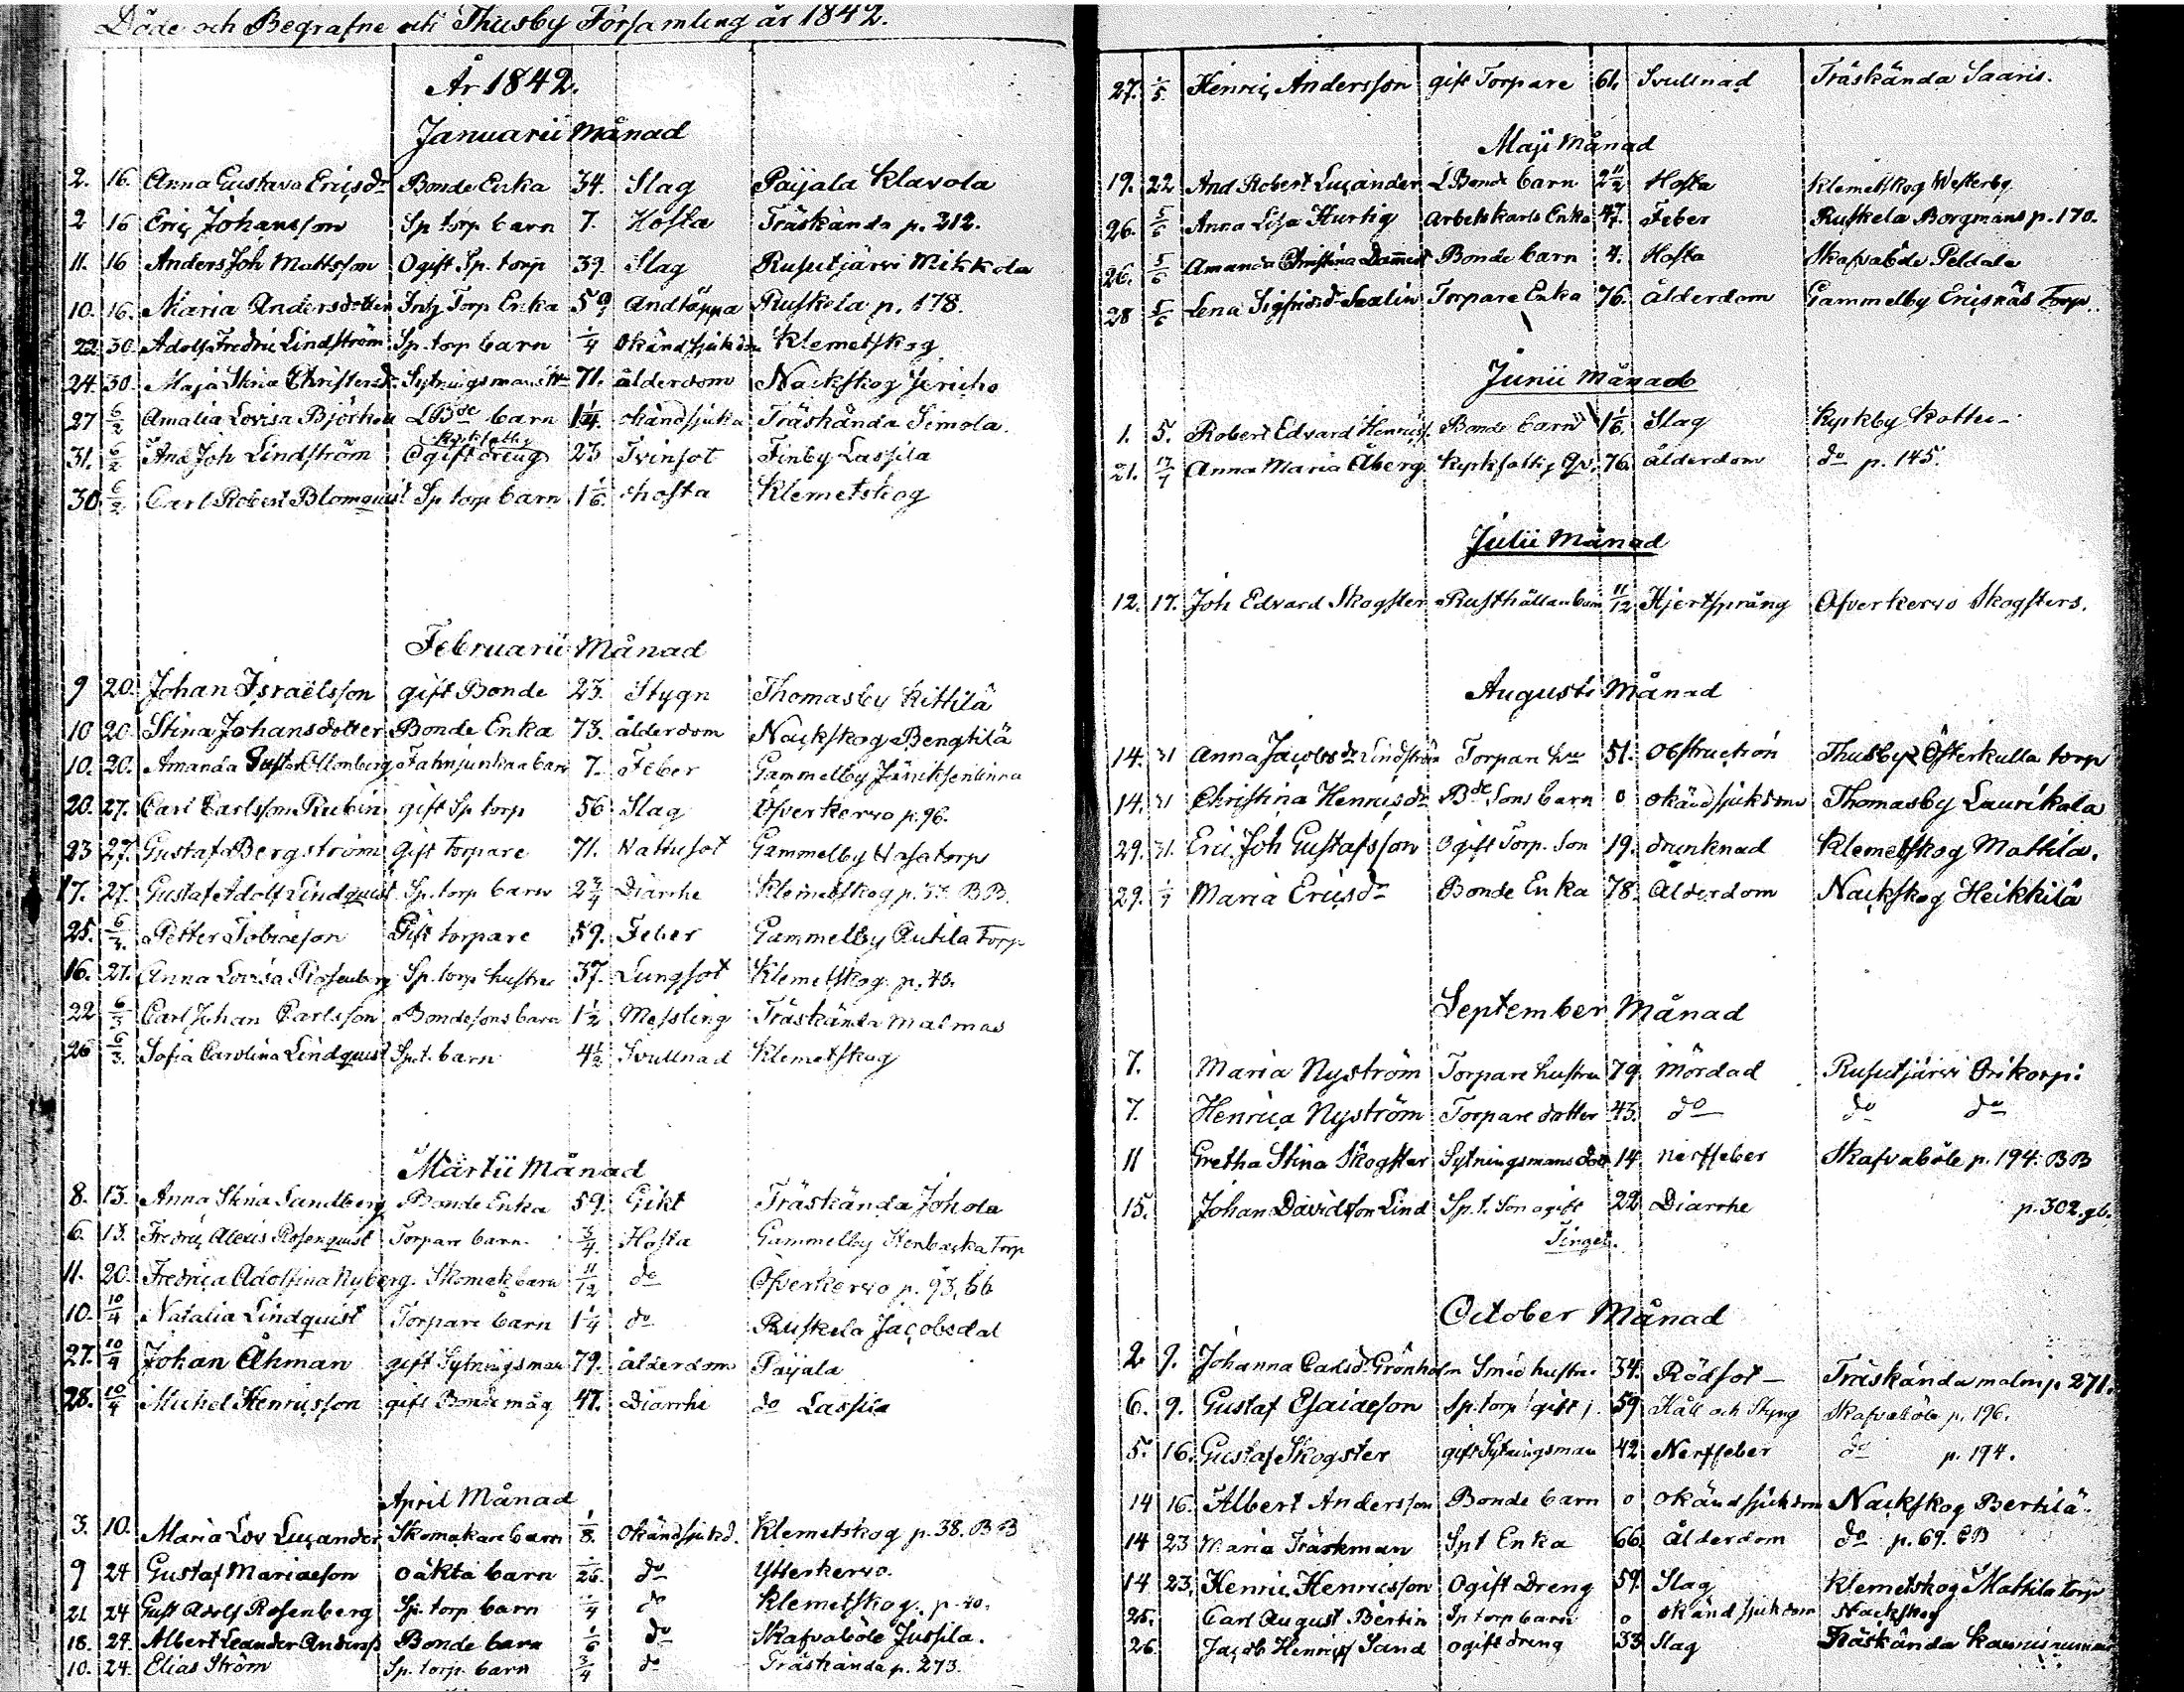 Döde och Begrafne uti Thusby Församling år 1842.
År 1842.
Januarii Månad
2. 16. Anna Gustava Ericsdr Bonde Enka 34. Slag Paijala Klavola
2 16 Eric Johansson Sp torp barn 7. Hosta Träskända p. 212.
11. 16 Anders Joh Mattsson Ogift Sp. torp 39. Slag Rusutjärvi Mikkola
10. 16. Maria Andersdotter Torp Enka 59 Andtäppa Ruskela p. 178.
22 30. Adolf Fredric Lindström Sp. torp barn 1/4 Okänd sjukdom Klemetskog
24. 30. Maja Stina Christersd. Sytningsmans 71. ålderdom Nackskog Jericho
27 6/2 Amalia Lovisa Björkell LBde barn 1 1/4. okänd sjuka Träskända Simola.
31. 6/2 And Joh Lindström Ogift dreng 23 Tvinsot Finby Lassila
30 6/2 Carl Robert Blomquist Sp torp barn 1 1/6. Hosta Klemetskog
Februarii Månad
9 20. Johan Israëlsson gift Bonde 23. Stygn Thomasby Kittilä
10 20. Stina Johansdotter Bonde Enka 73. ålderdom Nackskog Bengtilä
10. 20. Amanda Gust. Ollonberg Fahnjunkare barn 7. Feber Gammelby
20. 27. Carl Carlsson Rubin gift Sp torp 56 Slag Öfverkervo p. 96.
23 27. Gustaf Bergström Gift torpare 71. Vattusot Gammelby torp
17. 27. Gustaf Adolf Lindquist Sp. torp barn 2 3/4 Diarrhe Klemetskog p. 37. BB.
25. 6/3. Petter Tobiaeson Gift torpare 59. Feber Gammelby Autila Torp
16. 27. Anna Lovisa Rosenberg Sp. torp hustru 37. Lungsot Klemetskog p. 40.
22 6/3 Carl Johan Carlsson Bondesons barn 1 1/2 Messling Träskända Malmas
26 6/3. Sofia Carolina Lindquist Sp.t. barn 4 1/2 Svullnad Klemetskog
Martii Månad
8. 13. Anna Stina Sandberg Bonde Enka 59. Gikt Träskända Johola
6. 13. Fredric Alexis Rosenquist Torpare barn 3/4. Hosta Gammelby Torp
11. 20. Fredrica Adolfina Nyberg. Skomak barn 11/12 do Öfverkervo p. 93. bb
10. 10/4 Natalia Lindquist Torpare barn 1 1/4 do Ruskela Jacobsdal
27. 10/4 Johan Åhman gift Sytningsman 79. ålderdom Paijala
28. 10/4 Michel Henricsson gift Bonde måg 47. Diarrhe do Lassila
April Månad
3. 10. Maria Lov Lucander Skomakare barn 1/8. okänd sjukd. Klemetskog p. 38. BB
9 24 Gustaf Mariaeson oäkta barn 1/26. do Ytterkervo.
21 24 Gust Adolf Rosenberg Sp. torp barn 1/4 do Klemetskog. p. 40.
18. 24. Albert Leander Anderss Bonde barn 1/6 do Skafvaböle Jussila.
10. 24. Elias Ström Sp. torp. barn 3/4 do Träskända p. 273.
27. 1/5 Henric Andersson gift Torpare 61. Svullnad Träskända Saaris.
Maji Månad
19. 22 And Robert Lucander L Bonde barn 2 11/12 Hosta Klemetskog Westerby
26. 5/6 Anna Lisa Hurtig Arbetskarls Enka 47. Feber Ruskela Borgmans p. 170.
26. 5/6 Amanda Christina Bonde barn 4. Hosta Skafvaböle Peldala
28 5/6 Lena Sigfridsdr Saxlin Torpare Enka 76. ålderdom Gammelby Ericsnäs Torp.
Junii Månad
1. 5. Robert Edvard Henricss. Bonde barn 1 1/6. Slag Kyrkby Kothu
21. 17/7 Anna Maria Åberg Kyrkfattig 76. ålderdom do p. 145.
Julii Månad
12. 17. Joh Edvard Skogster Rusthållare barn 11/12 Hjertsprång Öfverkervo Skogsters.
Augusti Månad
14. 31 Anna Jacobsdr Lindström Torpare hu 51. Obstruction Thusby Österkulla torp
14. 31 Christina Henricsdr Bde Sons barn 0 okänd sjukdom Thomasby Laurikala
29. 31. Eric Joh Gustafsson Ogift Torp. Son 19. drunknad Klemetskog Mattila.
29. Maria Ericsdr Bonde Enka 78. Ålderdom Nackskog Heikkilä
September Månad
7. Maria Nyström Torpare hustru 79. Mördad Rusutjärvi Orikorpi
7. Henrica Nyström Torpare dotter 43. do do do
11 Gretha Stina Skogster Sytningsmans dott 14 nerffeber Skafvaböle p. 194. BB
15. Johan Davidsson Lind Sp.t. Son ogift 22 Diarrhe p. 302. gb.
October Månad
2. 9. Johanna Carlsdr Grönholm Smed hustru 34. Rödsot Träskända malm p. 271.
6. 9. Gustaf Esaiaeson Sp. torp gift 59 Håll och Styng Skafvaböle p. 196.
5. 16. Gustaf Skogster gift Sytningsman 42 Nerffeber do p. 194.
14 16. Albert Andersson Bonde barn 0 okänd sjukdom Nackskog Bertilä
14 23 Maria Träskman Spt Enka 66. Ålderdom do p. 69. BB
14 23. Henric Henricsson Ogift Dreng 59. Slag Klemetskog Mattila torp
25. Carl August Bertin Sp torp barn 0 okänd sjukdom Nackskog
26. Jacob Henricss Sand ogift dreng 33. Slag Träskända